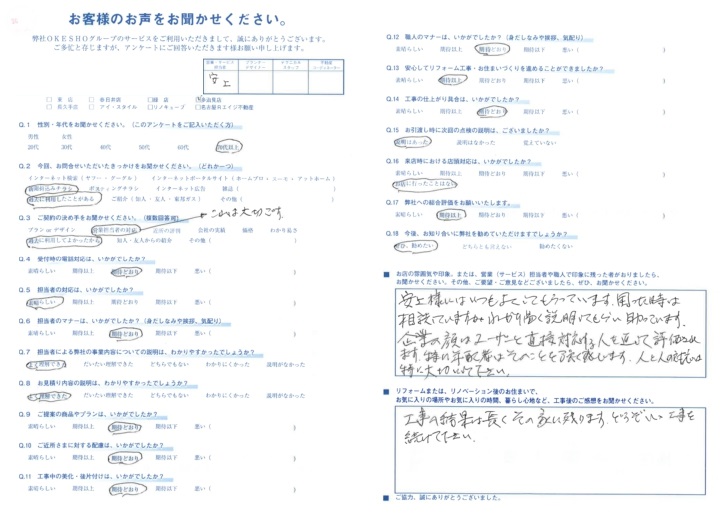 お客様のお声をお聞かせください。
弊社OKESHOグループのサービスをご利用いただきまして、誠にありがとうございます。
ご多忙と存じますが、アンケートにご回答いただきます様お願い申し上げます。
安上
Q.1 性別・年代をお聞かせください。（このアンケートをご記入いただく方）
男性 女性
20代 30代 40代 50代 60代 70代以上
Q.2 今回、お問合せいただいたきっかけをお聞かせください。（どれか一つ）
インターネット検索（ヤフー・グーグル） インターネットポータルサイト（ホームプロ・スーモ・アットホーム）
新聞折込みチラシ ポスティングチラシ インターネット広告 雑誌（ ）
過去に利用したことがある ご紹介（知人・友人・東邦ガス） その他（ ）
Q.3 ご契約の決め手をお聞かせください。（複数回答可） これは大切です。
プラン or デザイン 営業担当者の対応 会社の実績 価格 わかり易さ
過去に利用してよかったから 知人・友人からの紹介 その他（ ）
Q.4 受付時の電話対応は、いかがでしたか？
素晴らしい 期待以上 期待どおり 期待以下 悪い（ ）
Q.5 担当者の対応は、いかがでしたか？
素晴らしい 期待以上 期待どおり 期待以下 悪い（ ）
Q.6 担当者のマナーは、いかがでしたか？（身だしなみや挨拶、気配り）
素晴らしい 期待以上 期待どおり 期待以下 悪い（ ）
Q.7 担当者による弊社の事業内容についての説明は、わかりやすかったでしょうか？
よく理解できた だいたい理解できた どちらでもない わかりにくかった 説明がなかった
Q.8 お見積り内容の説明は、わかりやすかったでしょうか？
よく理解できた だいたい理解できた どちらでもない わかりにくかった 説明がなかった
Q.9 ご提案の商品やプランは、いかがでしたか？
素晴らしい 期待以上 期待どおり 期待以下 悪い（ ）
Q.10 ご近所さまに対する配慮は、いかがでしたか？
素晴らしい 期待以上 期待どおり 期待以下 悪い（ ）
Q.11 工事中の美化・後片付けは、いかがでしたか？
素晴らしい 期待以上 期待どおり 期待以下 悪い（ ）
Q.12 職人のマナーは、いかがでしたか？（身だしなみや挨拶、気配り）
素晴らしい 期待以上 期待どおり 期待以下 悪い（ ）
Q.13 安心してリフォーム工事・お住まいづくりを進めることができましたか？
素晴らしい 期待以上 期待どおり 期待以下 悪い（ ）
Q.14 工事の仕上がり具合は、いかがでしたか？
素晴らしい 期待以上 期待どおり 期待以下 悪い（ ）
Q.15 お引渡し時に次回の点検の説明は、ございましたか？
説明はあった 説明はなかった 覚えていない
Q.16 来店時における店頭対応は、いかがでしたか？
素晴らしい 期待以上 期待どおり 期待以下 悪い（ ）
お店に行ったことはない
Q.17 弊社への総合評価をお願いいたします。
素晴らしい 期待以上 期待どおり 期待以下 悪い（ ）
Q.18 今後、お知り合いに弊社を勧めていただけますでしょうか？
ぜひ、勧めたい どちらとも言えない 勧めたくない
■ お店の雰囲気や印象。または、営業（サービス）担当者や職人で印象に残った者がおりましたら、
お聞かせください。その他、ご要望・ご意見などございましたら、ぜひ、お聞かせください。
安上様にはいつもよくしてもらっています。困った時は
相談していますがわかり易く説明してもらい助かっています。
企業の顔はユーザーと直接対応する人を通じて評価され
ます。特に年配者はそのことを強く感じます。人と人の対応は
特に大切にして下さい。
■ リフォームまたは、リノベーション後のお住まいで、
お気に入りの場所やお気に入りの時間、暮らし心地など、工事後のご感想をお聞かせください。
工事の結果は長くその家に残ります。どうぞいい工事を
続けて下さい。
■ ご協力、誠にありがとうございました。